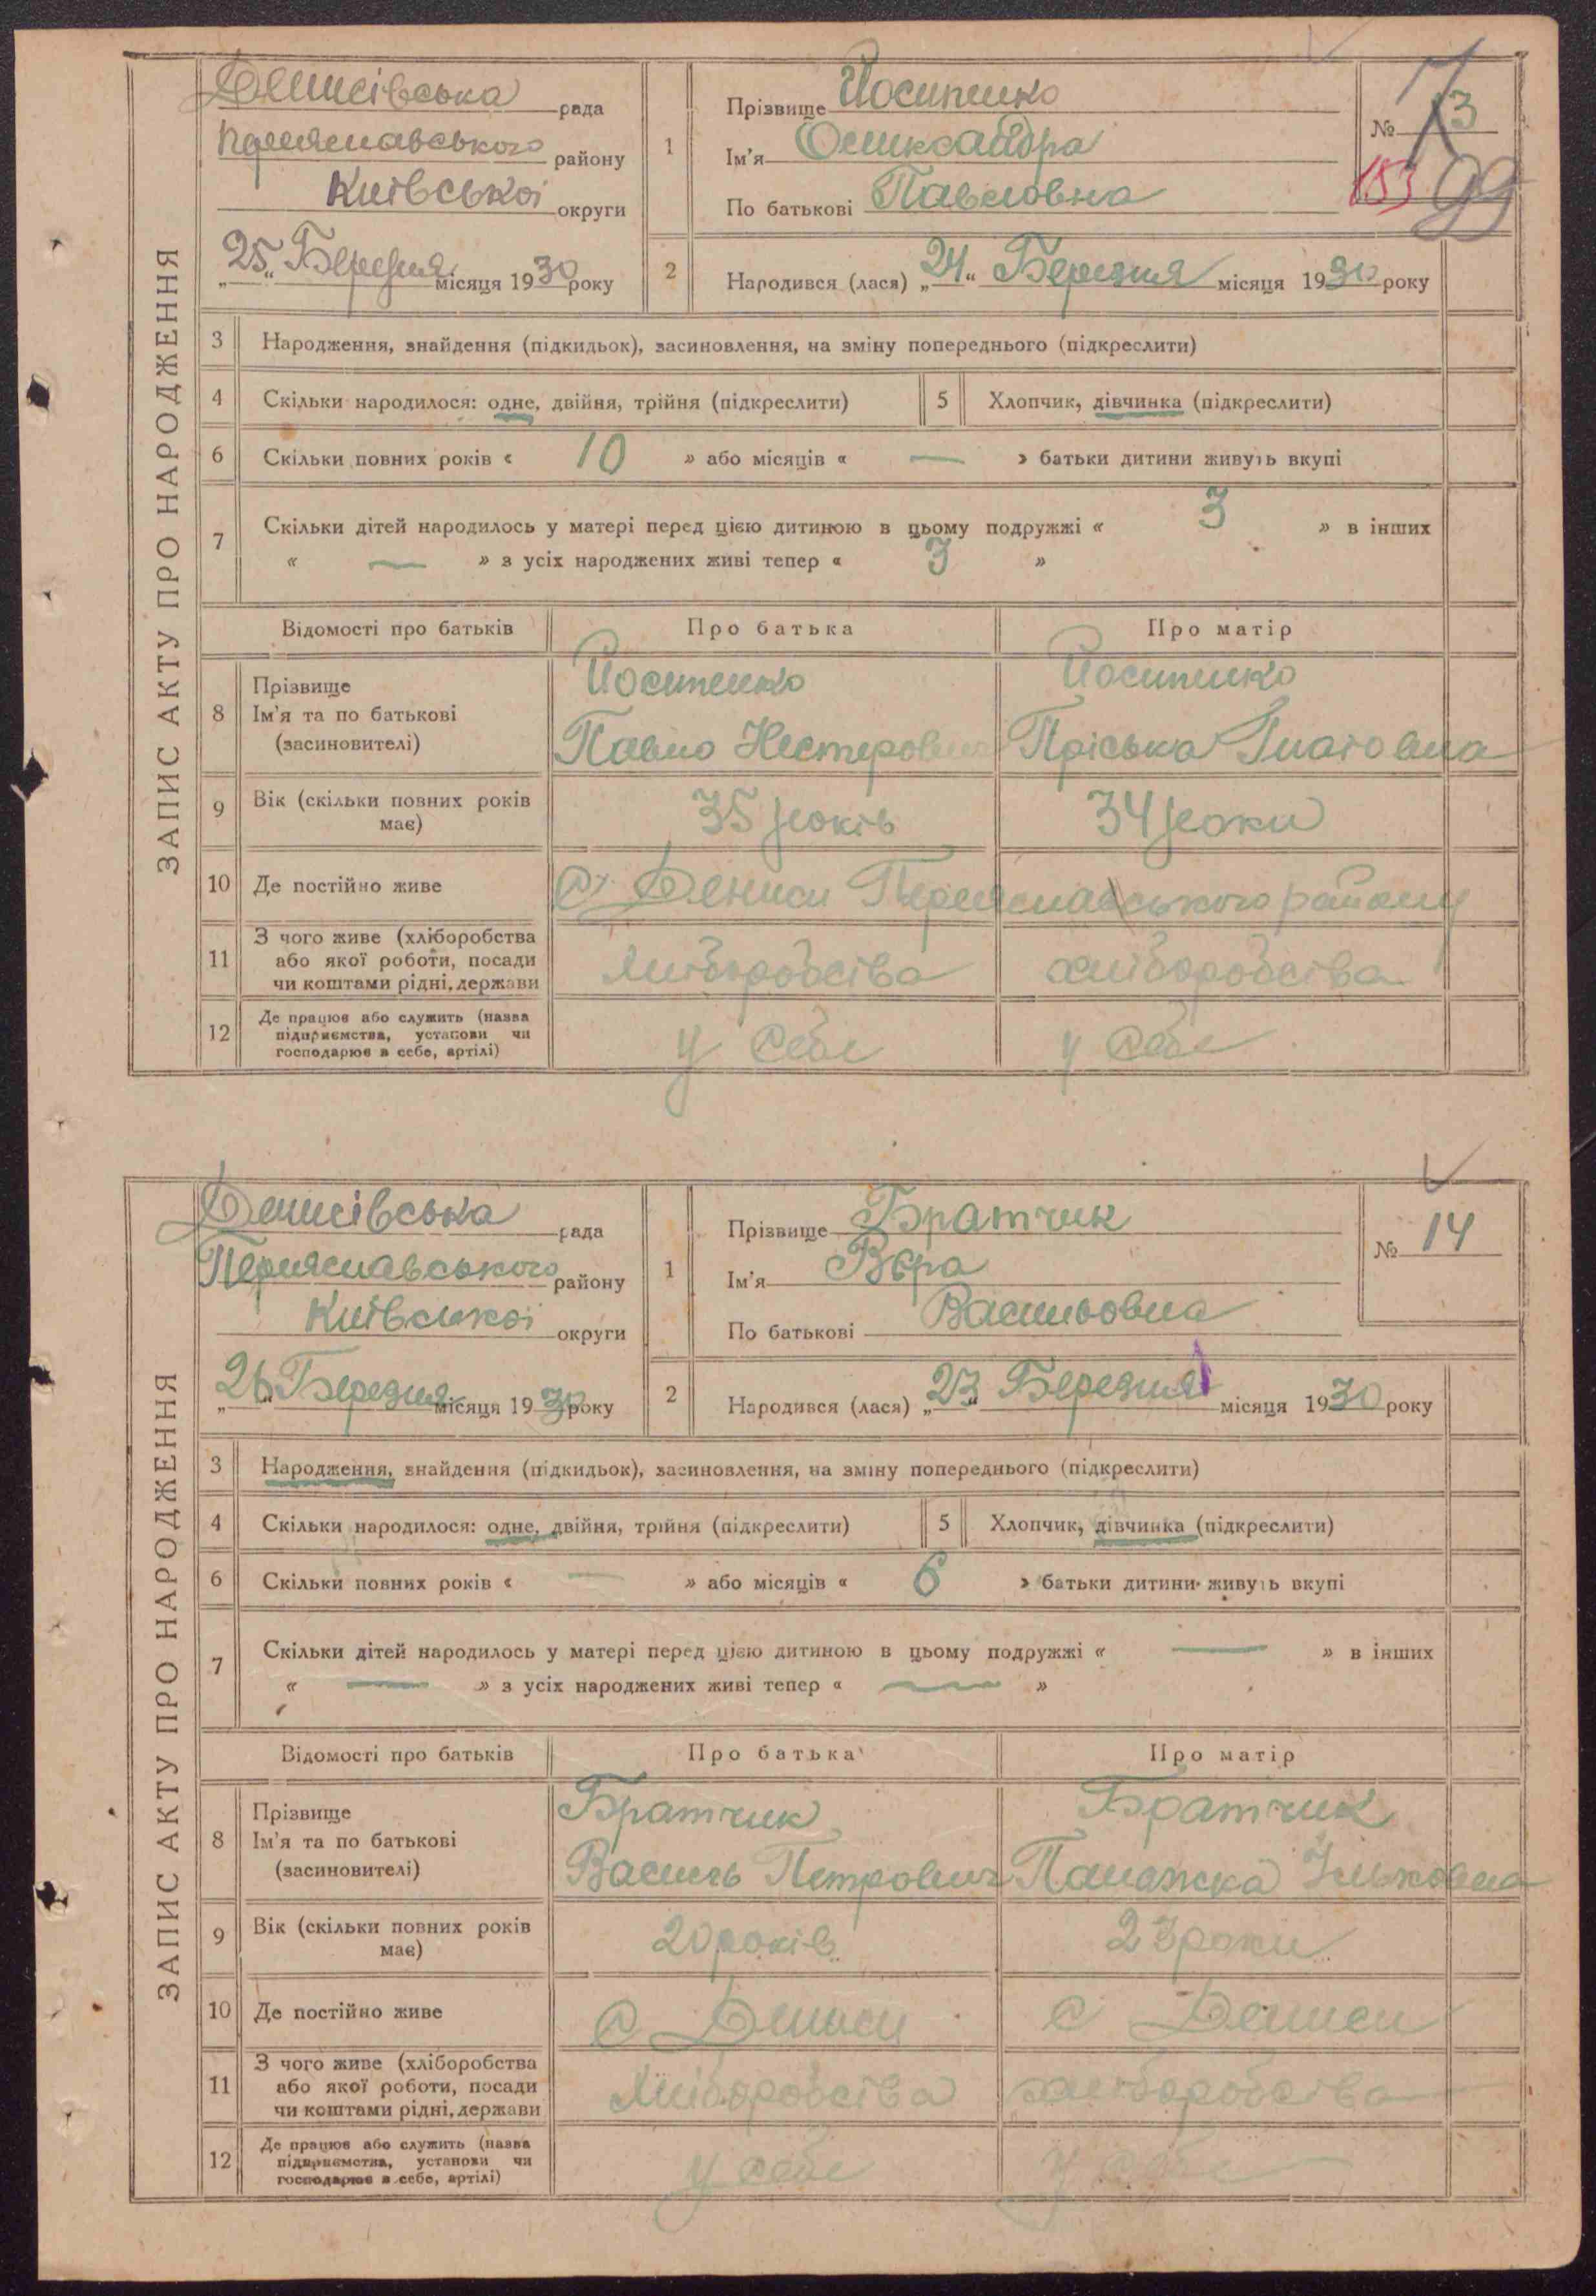 ЗАПИС АКТУ ПРО НАРОДЖЕННЯ
Денисівська рада
Переяславського району
Київської округи
„25“ Березня місяця 1930 року
1 Прізвище Йосипенко
Ім'я Олександра
По батькові Павловна
№ 13
153 99
2 Народився (лася) „24“ Березня місяця 1930 року
3 Народження, знайдення (підкидьок), засиновлення, на зміну попереднього (підкреслити)
4 Скільки народилося: одне, двійня, трійня (підкреслити) 5 Хлопчик, дівчинка (підкреслити)
6 Скільки повних років « 10 » або місяців « — » батьки дитини живуть вкупі
7 Скільки дітей народилось у матері перед цією дитиною в цьому подружжі « 3 » в інших
« — » з усіх народжених живі тепер « 3 »
Відомості про батьків Про батька Про матір
8 Прізвище
Ім'я та по батькові
(засиновителі)
Йосипенко
Павло Нестерович
Йосипенко
Пріська Гнатовна
9 Вік (скільки повних років
має)
35 років 34 роки
10 Де постійно живе с. Дениси Переяславського району
11 З чого живе (хліборобства
або якої роботи, посади
чи коштами рідні, держави
хліборобства хліборобства
12 Де працює або служить (назва
підприємства, установи чи
господарює в себе, артілі)
у себе у себе
ЗАПИС АКТУ ПРО НАРОДЖЕННЯ
Денисівська рада
Переяславського району
Київської округи
„26“ Березня місяця 1930 року
1 Прізвище Братчик
Ім'я Вєра
По батькові Васильовна
№ 14
2 Народився (лася) „23“ Березня місяця 1930 року
3 Народження, знайдення (підкидьок), засиновлення, на зміну попереднього (підкреслити)
4 Скільки народилося: одне, двійня, трійня (підкреслити) 5 Хлопчик, дівчинка (підкреслити)
6 Скільки повних років « — » або місяців « 6 » батьки дитини живуть вкупі
7 Скільки дітей народилось у матері перед цією дитиною в цьому подружжі « — » в інших
« — » з усіх народжених живі тепер « — »
Відомості про батьків Про батька Про матір
8 Прізвище
Ім'я та по батькові
(засиновителі)
Братчик
Василь Петрович
Братчик
Панажка Ільковна
9 Вік (скільки повних років
має)
20 років 23 роки
10 Де постійно живе с Дениси с Дениси
11 З чого живе (хліборобства
або якої роботи, посади
чи коштами рідні, держави
хліборобства хліборобства
12 Де працює або служить (назва
підприємства, установи чи
господарює в себе, артілі)
у себе у себе